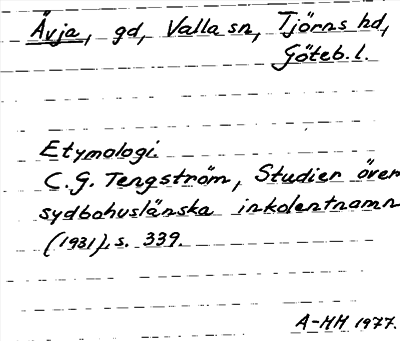 Åvja, gd, Valla sn, Tjörns hd,
Göteb. l.
Etymologi.
C. G. Tengström, Studier över
sydbohuslänska inkolentnamn
(1931), s. 339.
A-HH 1977.